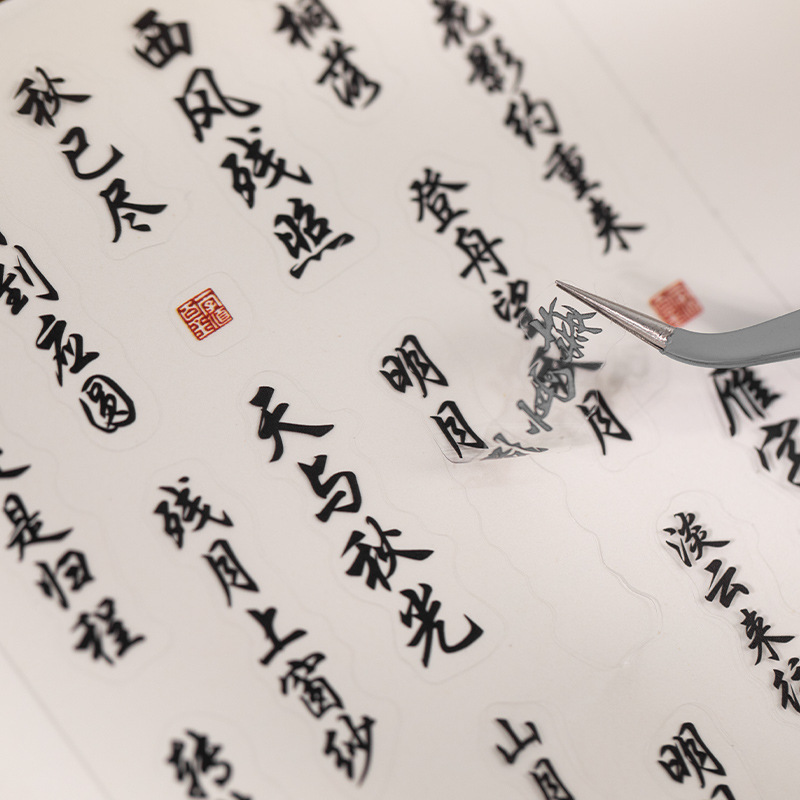 秋已尽
西风残照
桐落
花影约重来
到应圆
登舟望
月
明月
天与秋光
雁字
是归程
残月上窗纱
淡云来往
转
山月
明月